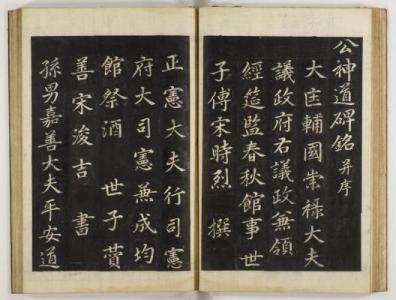 公神道碑銘 并序
大匡輔國崇祿大夫
議政府右議政兼領
經筵監春秋館事 世
子傅宋時烈 撰
正憲大夫行司憲
府大司憲兼成均
館祭酒 世子贊
善宋浚吉 書
孫男嘉善大夫平安道